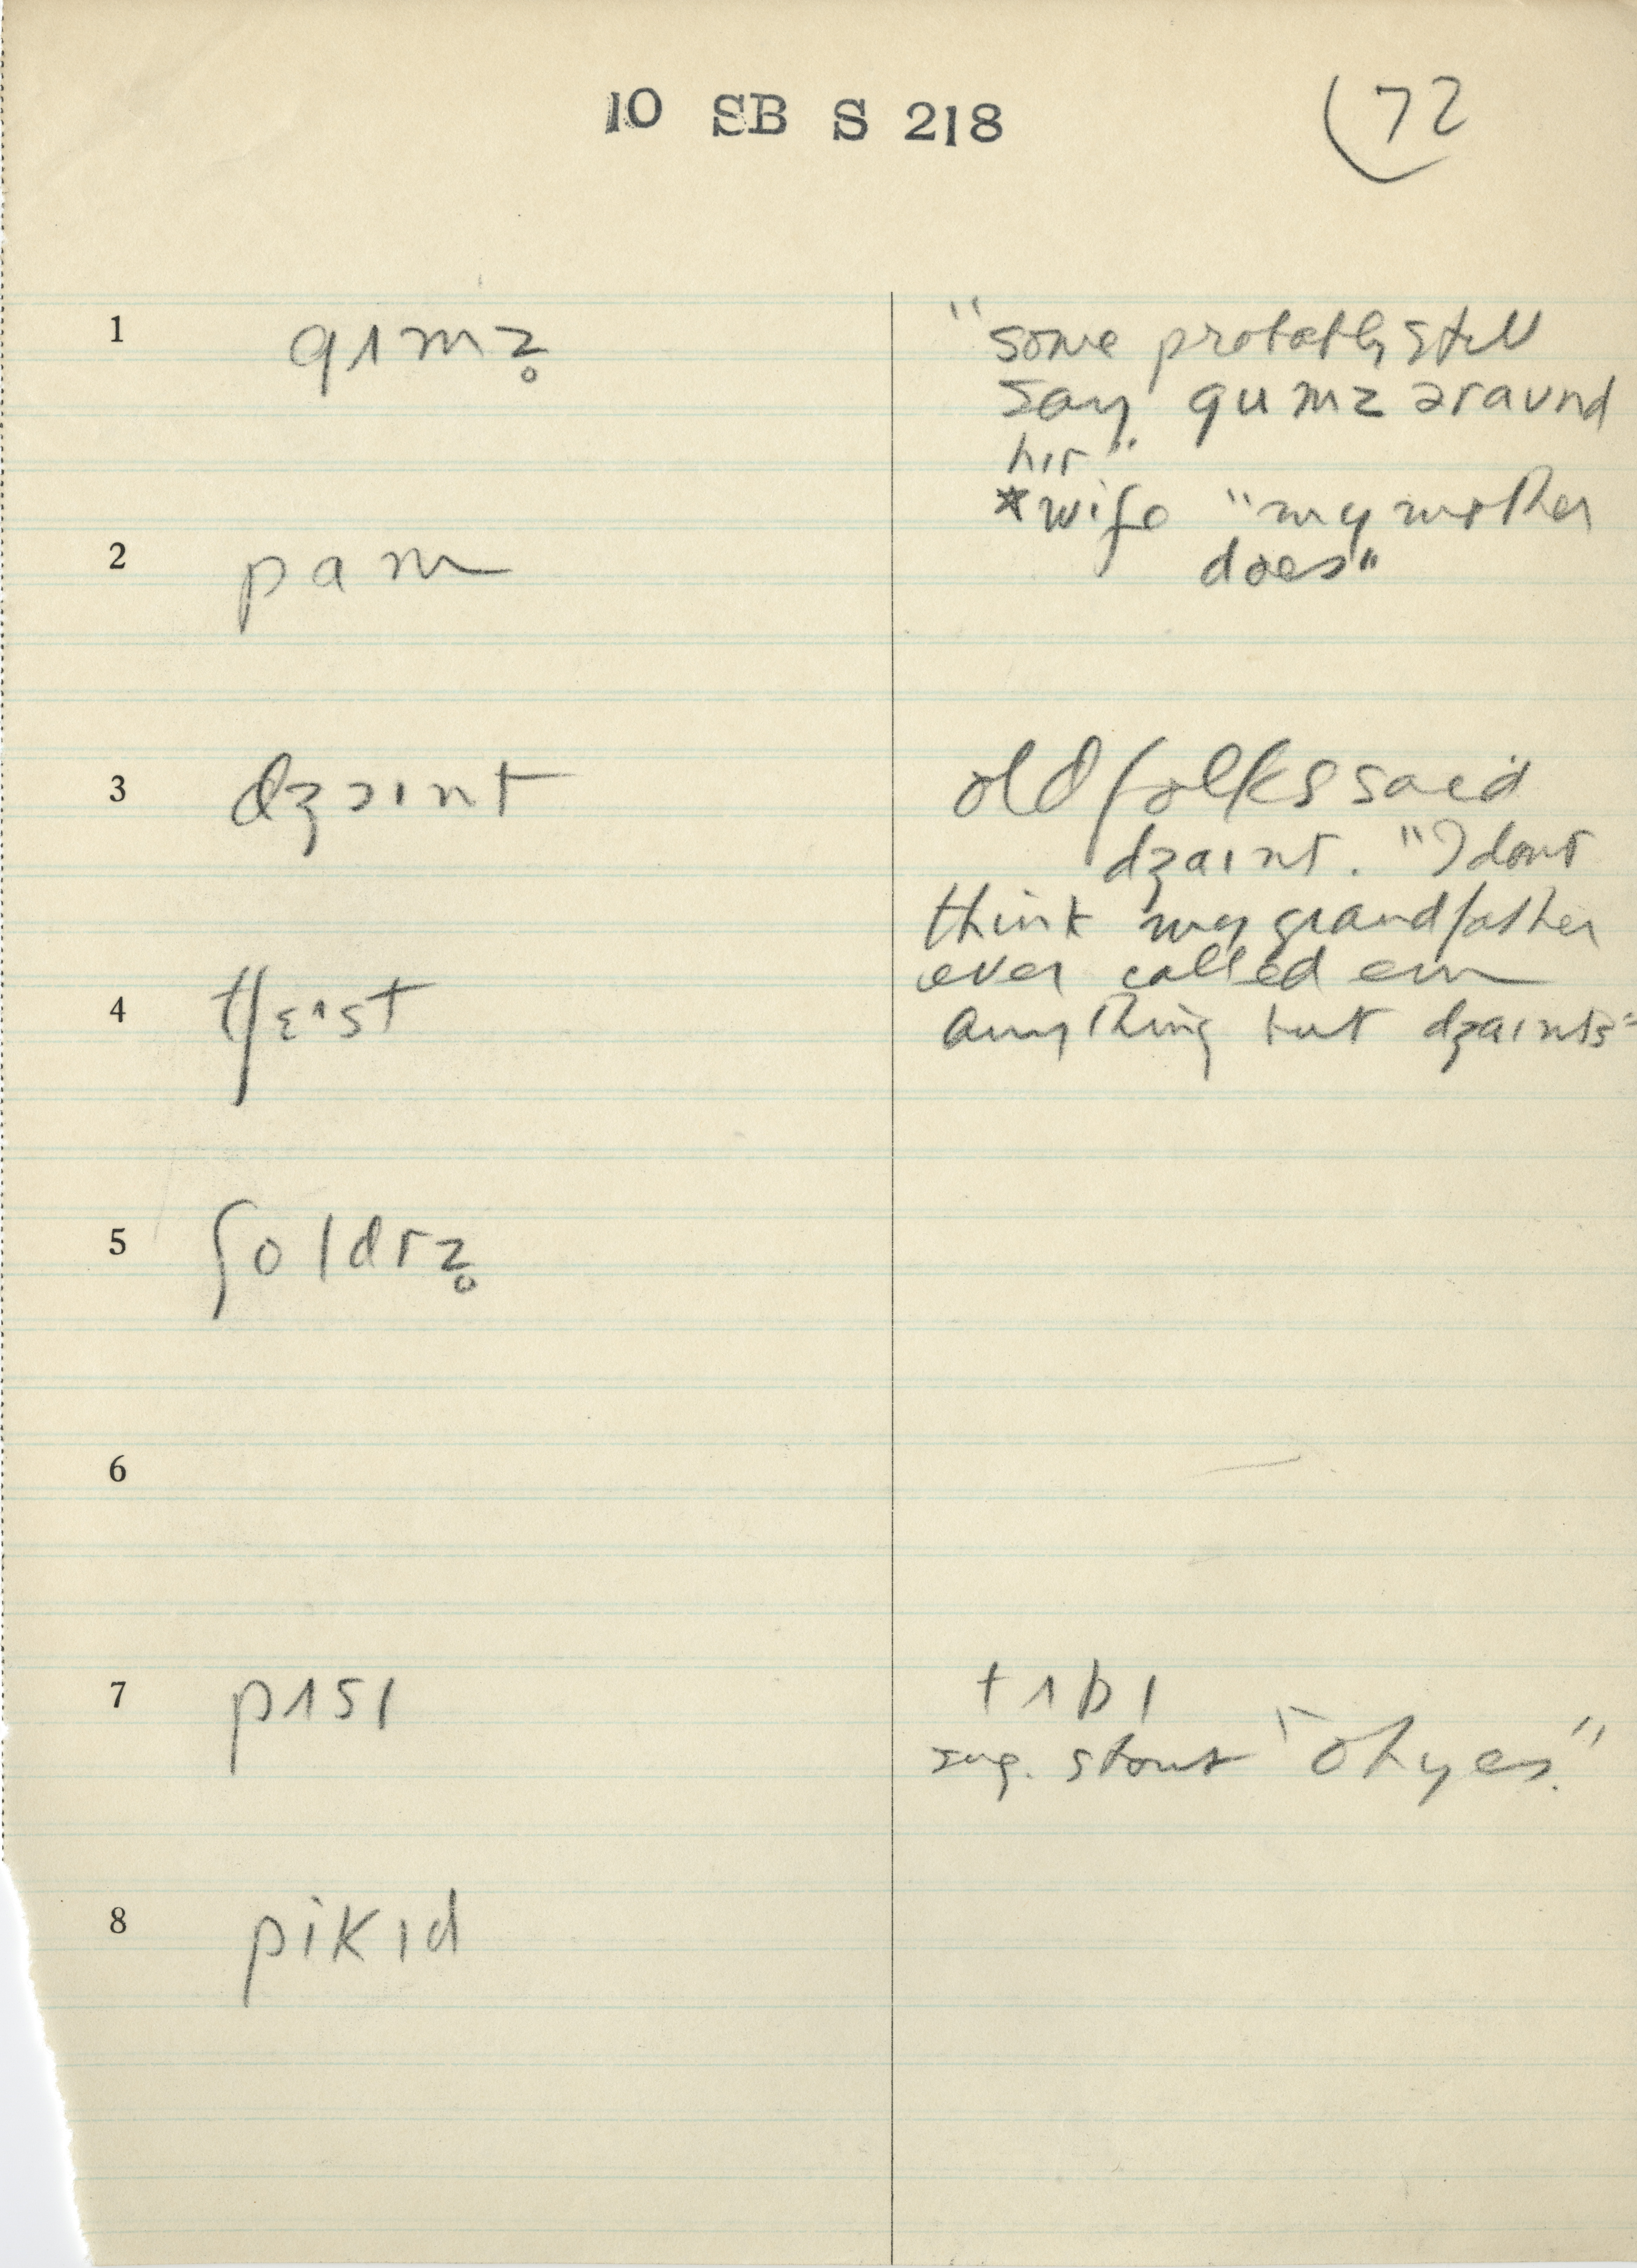 10 SB S 218
72
1 gʌmz̥
"some probably still
say gumz əraʊnd
hɪr"
*wife "my mother
does"
2 pam
3 dʒɔɪnt
old folks said
dʒaɪnt. "I dont
think my grandfather
ever called em
anything but dʒaɪnts"
4 tʃɛˑst
5 ʃoldrz̥
6
7 pʌsɪ
tʌbɪ
sug. stout "oh yes."
8 pikɪd